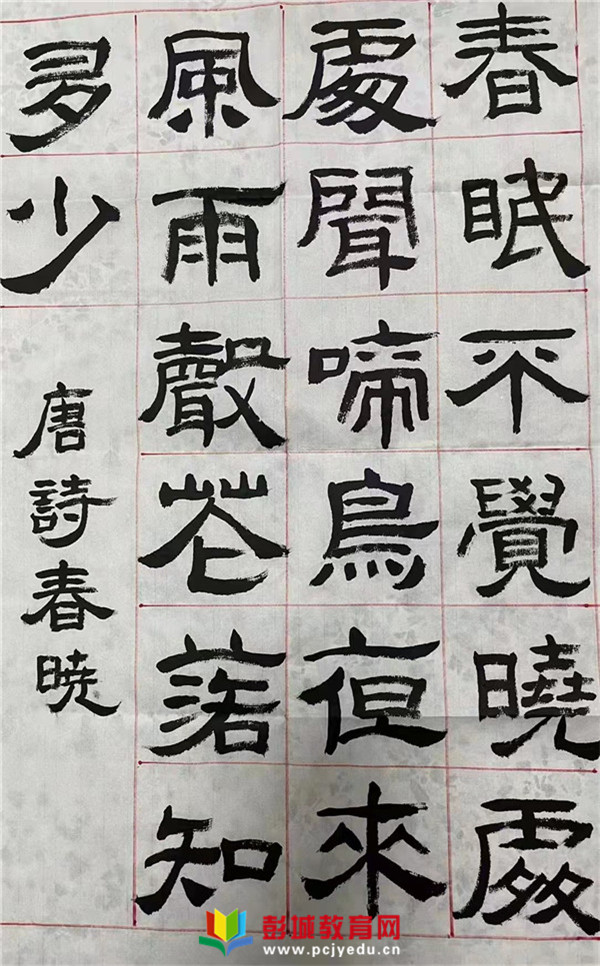 春眠不覺曉處
處聞啼鳥夜來
風雨聲花落知
多少
唐詩春曉
彭城教育网
www.pcjyedu.cn